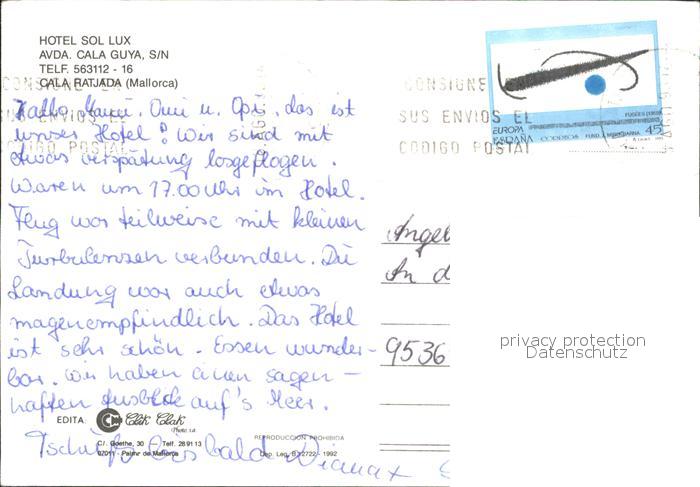 HOTEL SOL LUX
AVDA. CALA GUYA, S/N
TELF. 563112 - 16
CALA RATJADA (Mallorca)
Hallo Mami, Omi u. Opi, das ist
unser Hotel! Wir sind mit
etwas verspätung losgeflogen.
Waren um 17.00 Uhr im Hotel.
Flug war teilweise mit kleinen
Turbulenzen verbunden. Die
Landung war auch etwas
magenempfindlich. Das Hotel
ist sehr schön. Essen wunder-
bar. Wir haben einen sagen-
haften Ausblick auf's Meer.
Tschüß bis bald Diana
EDITA: Clik Clak
Photo s.a.
C/. Goethe, 30 — Telf. 28 91 13
07011 - Palma de Mallorca
REPRODUCCION PROHIBIDA
Dep. Leg. B-2722 - 1992
CONSIGNE EN
SUS ENVIOS EL
CODIGO POSTAL
EUROPA
ESPAÑA CORREOS 45
Angel
An d
9536
privacy protection
Datenschutz